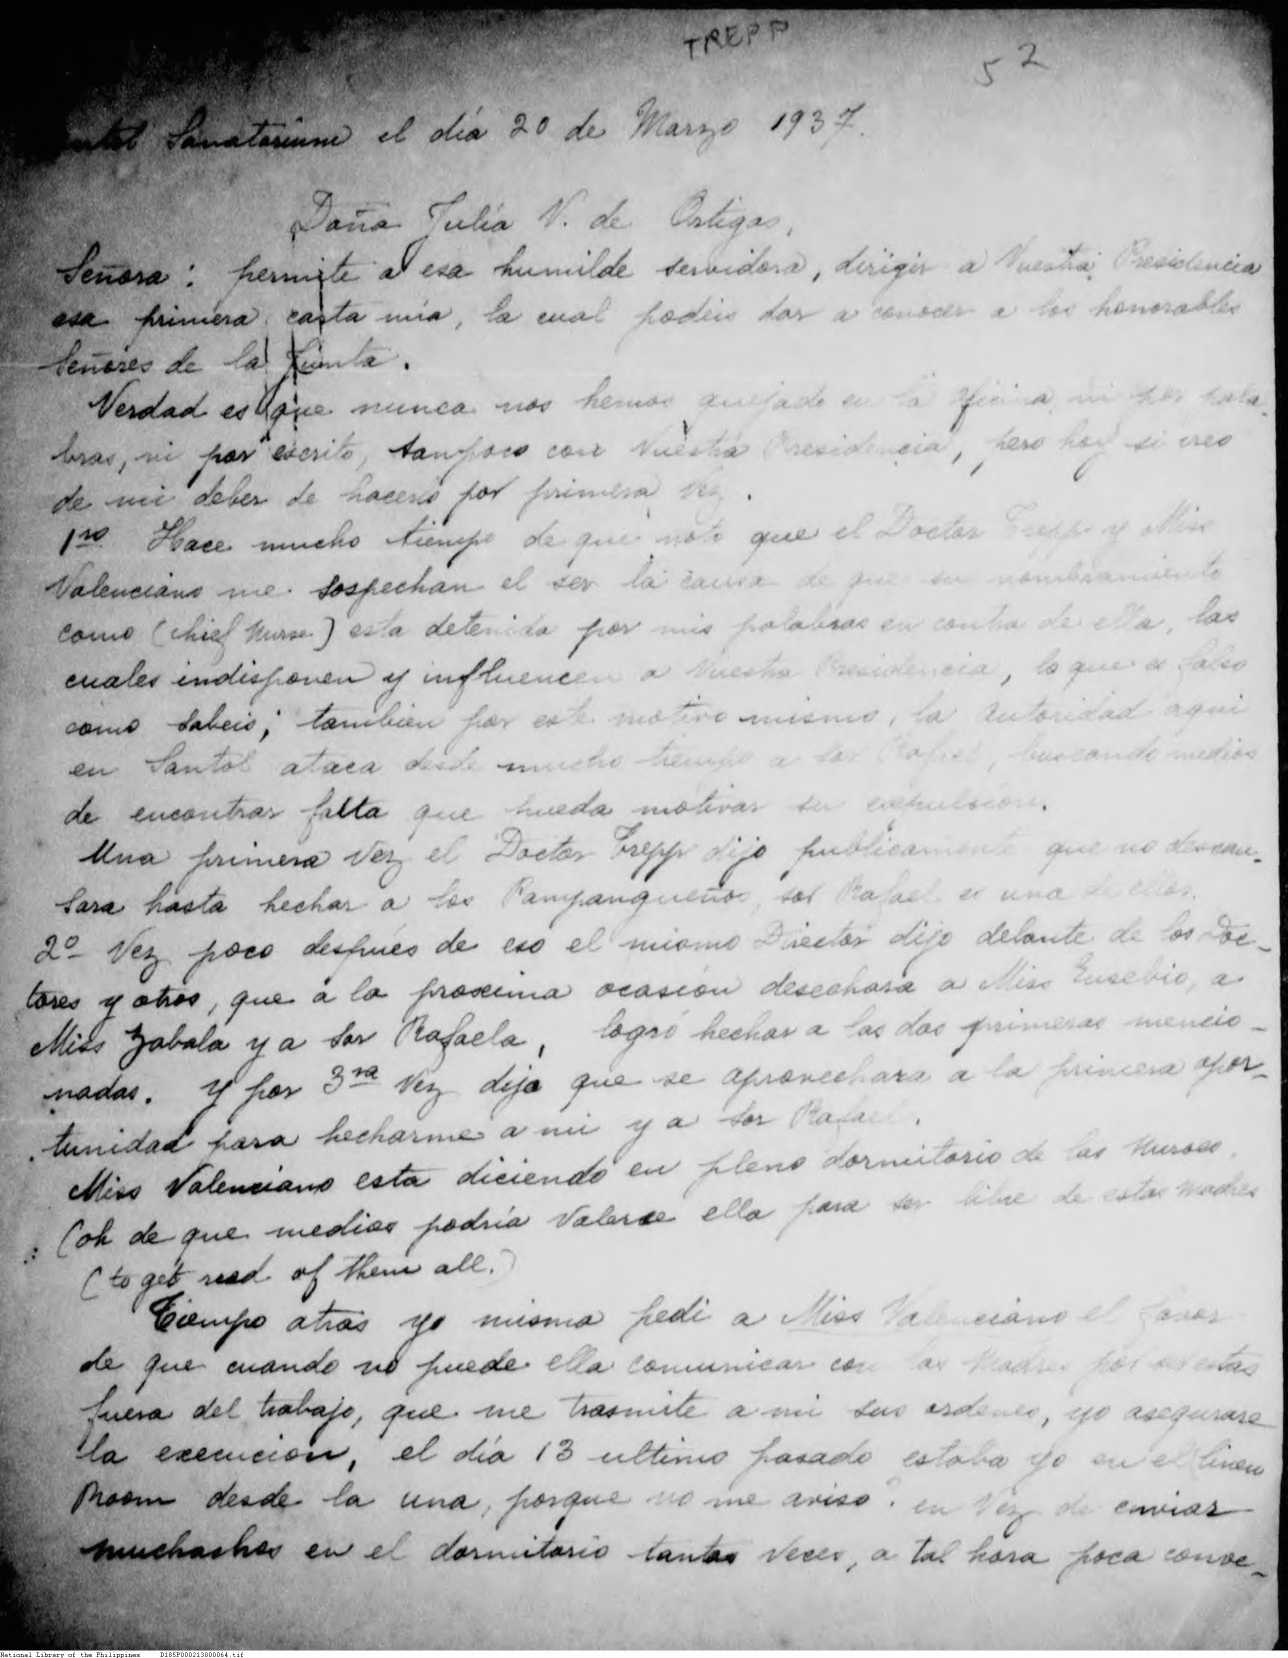 TREPP
52
Sanatorium el día 20 de Marzo 1937.
Doña Julia V. de Ortigas,
Señora: permite a esa humilde servidora, dirigir a Vuestra Presidencia
esa primera carta mia, la cual podeis dar a conocer a los honorables
Señores de la Junta.
Verdad es que nunca nos hemos quejado en la oficina ni por pala-
bras, ni por escrito, tampoco con Vuestra Presidencia, pero hoy si creo
de mi deber de hacerlo por primera vez.
1ro Hace mucho tiempo de que noto que el Doctor Trepp y Miss
Valenciano me sospechan el ser la causa de que su nombramiento
como (chief Nurse) esta detenido por mis palabras en contra de ella, las
cuales indisponen y influencen a Vuestra Presidencia, lo que es falso
como sabeis; tambien por este motivo mismo, la autoridad aqui
en Santol ataca desde mucho tiempo a Sor Rafael, buscando medios
de encontrar falta que pueda motivar su expulsion.
Una primera vez el Doctor Trepp dijo publicamente que no descan-
sara hasta hechar a los Pampangueños, sor Rafael es una de ellos.
2o Vez poco después de eso el mismo Director dijo delante de los Doc-
tores y otros, que a la proxima ocasion desechara a Miss Eusebio, a
Miss Zabala y a Sor Rafaela, logró hechar a las dos primeras mencio-
nadas. Y por 3ra Vez dijo que se aprovechara a la primera opor-
tunidad para hecharme a mi y a Sor Rafael.
Miss Valenciano esta diciendo en pleno dormitorio de las Nurses.
(oh de que medios podría valerse ella para ser libre de estas Madres
(to get read of them all.)
Tiempo atrás yo misma pedi a Miss Valenciano el favor
de que cuando no puede ella comunicar con las Madres por estas
fuera del trabajo, que me trasmite a mi sus ordenes, yo asegurare
la execucion, el día 13 ultimo pasado estaba yo en el linen
Room desde la una, porque no me aviso? en Vez de enviar
muchachos en el dormitorio tantas veces, a tal hora poca conve-
National Library of the Philippines D185P000213800064.tif